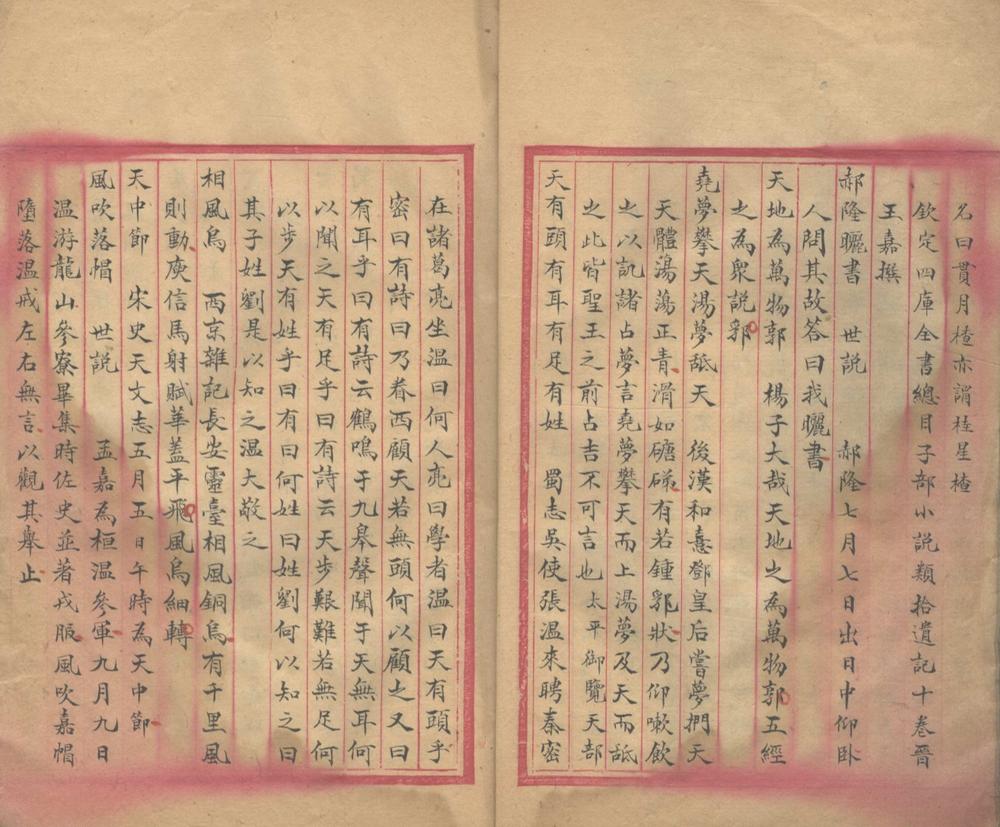 名曰貫月楂亦謂桂星楂
欽定四庫全書總目子部小說類拾遺記十卷晉
王嘉撰
郝隆曬書　世說　郝隆七月七日出日中仰卧
人問其故答曰我曬書
天地為萬物郭　楊子大哉天地之為萬物郭五經
之為衆說郛
堯夢攀天湯夢舐天　後漢和憙鄧皇后嘗夢捫天
天體湯蕩正青滑如磄磃有若鍾乳狀乃仰嗽飲
之以訊諸占夢言堯夢攀天而上湯夢及天而舐
之此皆聖王之前占吉不可言也太平御覽天部
天有頭有耳有足有姓　蜀志吳使張溫來聘秦密
在諸葛亮坐溫曰何人亮曰學者溫曰天有頭乎
密曰有詩曰乃眷西顧天若無頭何以顧之又曰
有耳乎曰有詩云鶴鳴于九皋聲聞于天無耳何
以聞之天有足乎曰有詩云天步艱難若無足何
以步天有姓乎曰有曰何姓曰姓劉何以知之曰
其子姓劉是以知之溫大敬之
相風烏　西京雜記長安靈臺相風銅烏有千里風
則動庾信馬射賦華蓋平飛風烏細轉
天中節　宋史天文志五月五日午時為天中節
風吹落帽　世說　孟嘉為桓溫參軍九月九日
溫游龍山參寮畢集時佐史並著戎服風吹嘉帽
墮落溫戒左右無言以觀其舉止